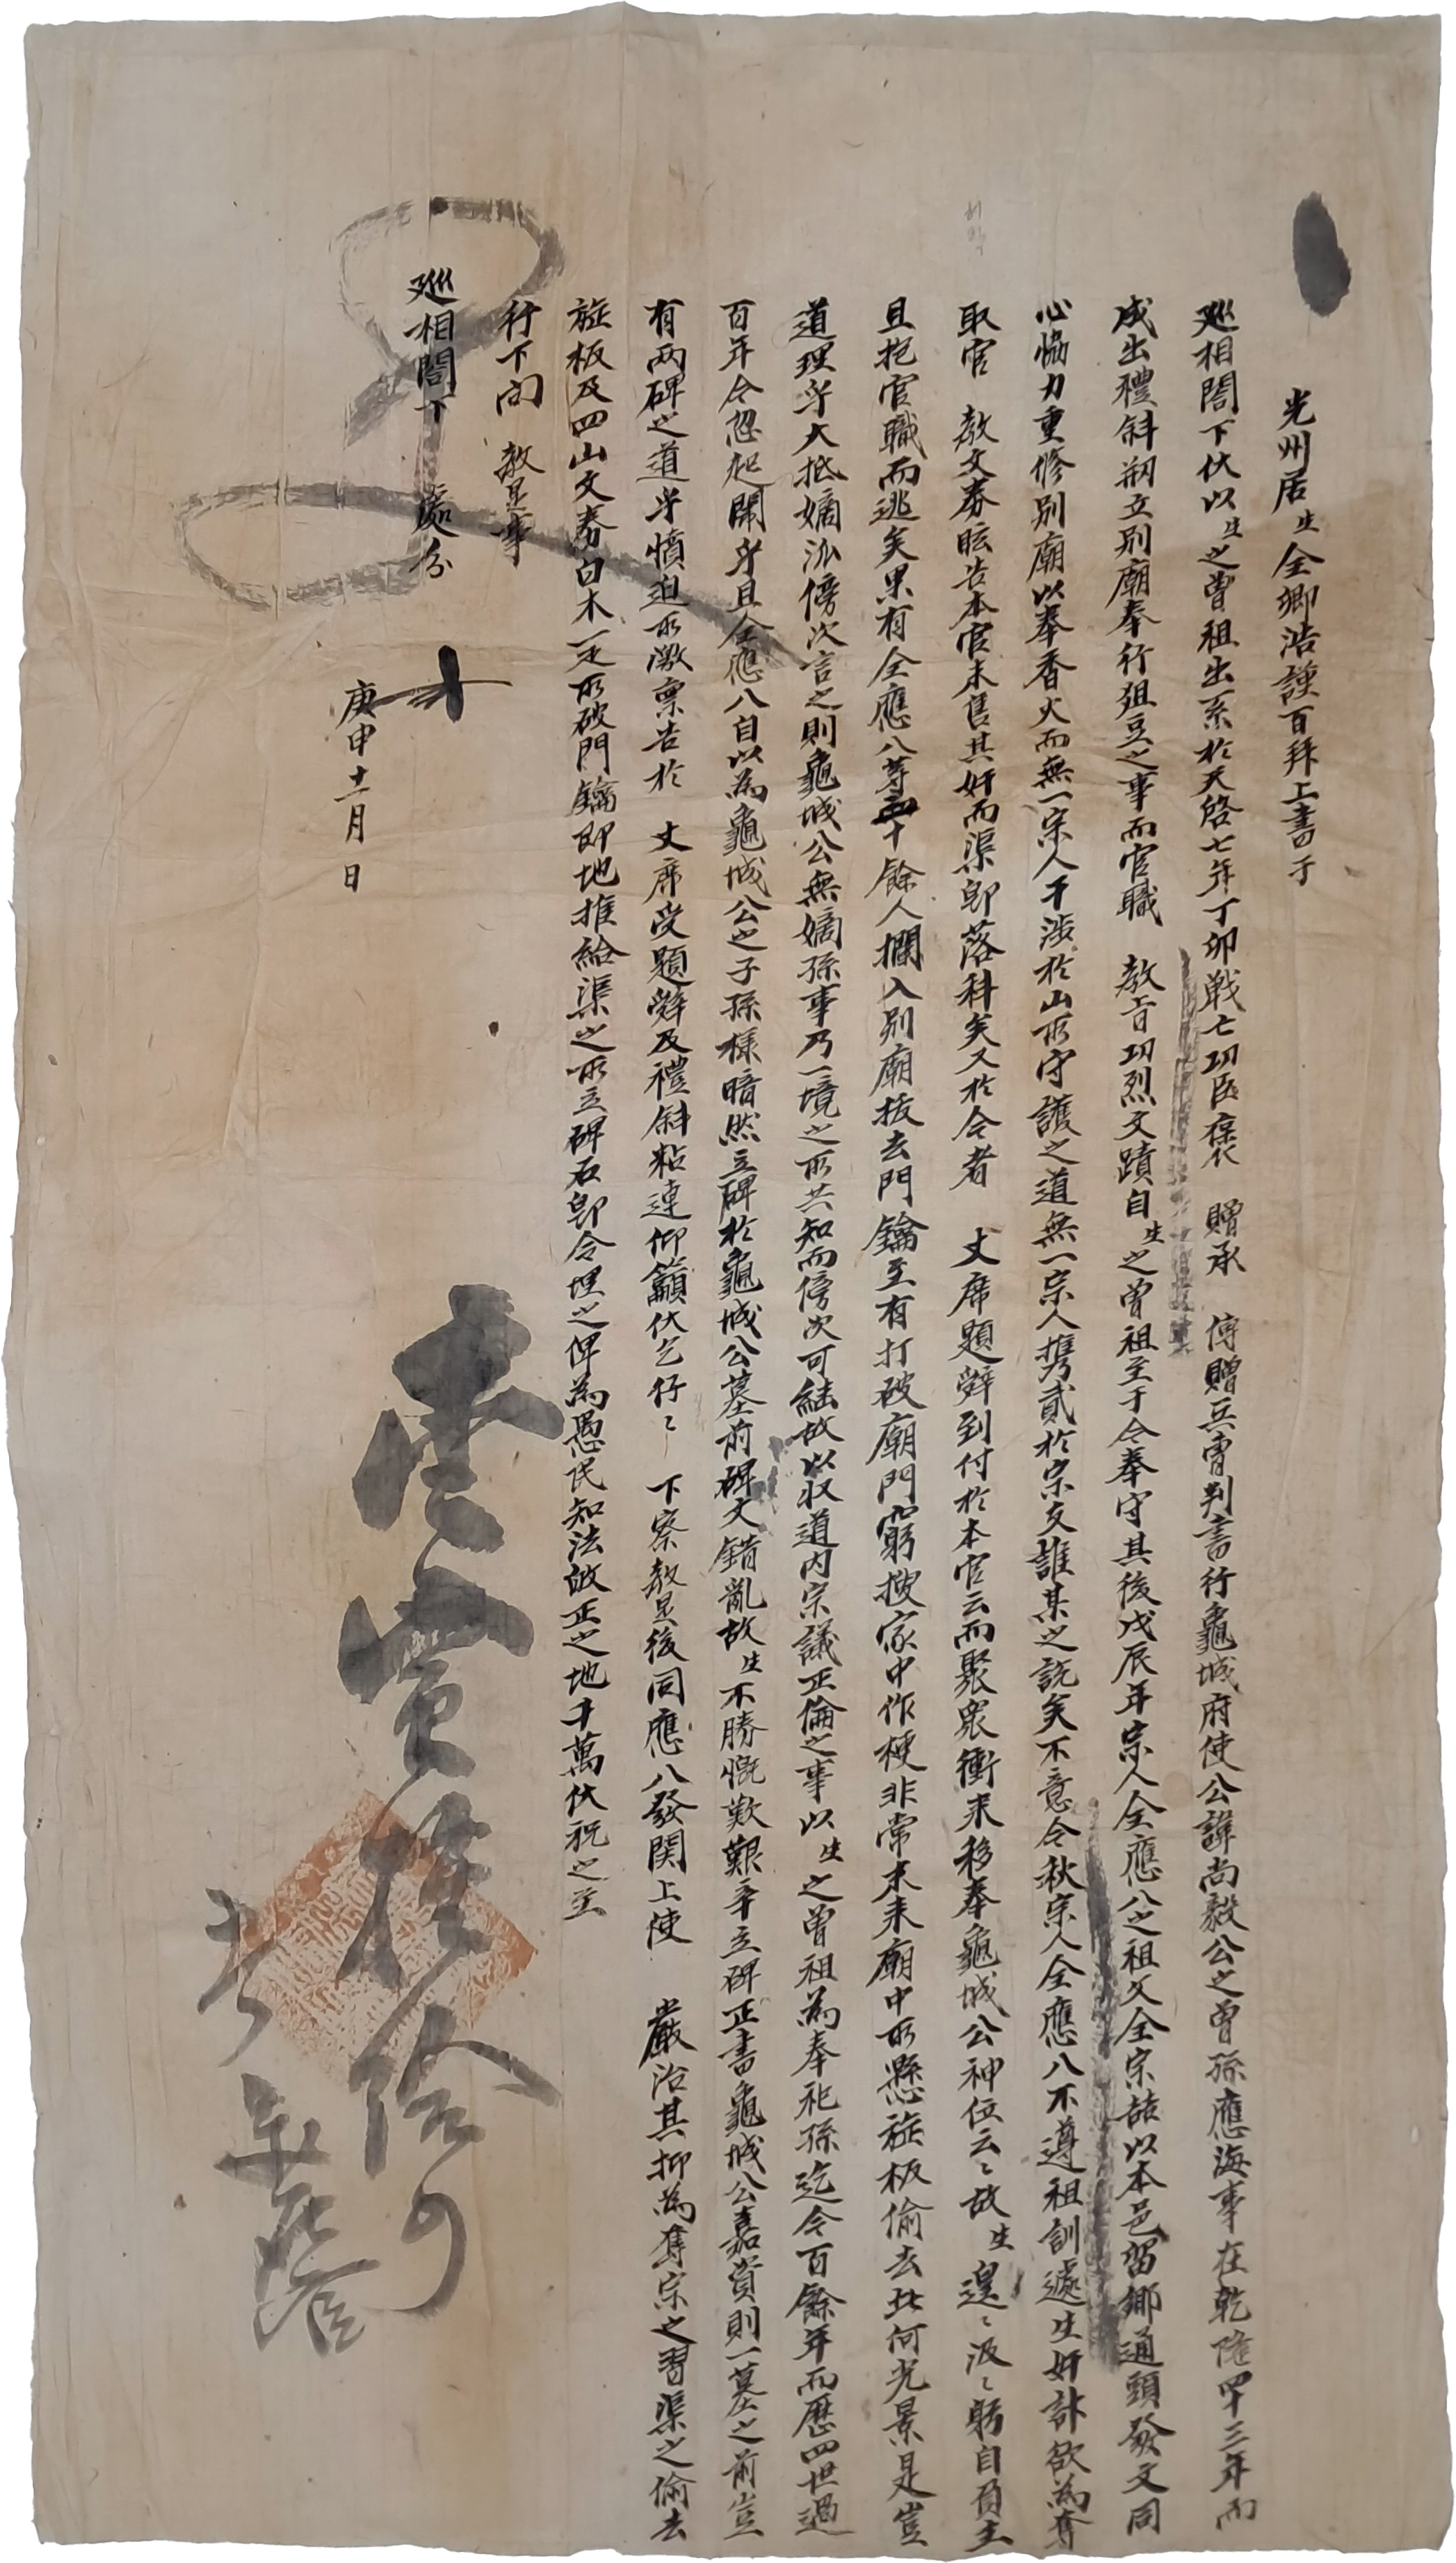 光州居生全鄕浩謹百拜上書于
巡相閤下伏以生之曾祖出系於天啓七年丁卯戰亡功臣褒贈承傳贈兵曹判書行龜城府使公諱尙毅公之曾孫應海事在乾隆四十三年而
成出禮斜刱立別廟奉行俎豆之事而官職敎旨功烈文蹟自生之曾祖至于今奉守其後戊辰年宗人全應八之祖父全宗喆以本邑留鄕通頭發文同
心協力重修別廟以奉香火而無一宗人干涉於山所守護之道無一宗人携貳於宗支誰某之說矣不意今秋宗人全應八不遵祖訓遽生奸計欲爲奪
取官敎文券眩告本官未售其奸而渠卽落科矣又於今者丈席題辭到付於本官云而聚衆衝來移奉龜城公神位云〻故生遑〻汲〻躬自負主
且抱官職而逃矣果有全應八等十餘人攔入別廟拔去門鑰至有打破廟門窮搜家中作梗非常末來廟中所懸旌板偸去此何光景是豈
道理乎大抵嫡派傍次言之則龜城公無嫡孫事乃一境之所共知而傍次可継故以收道內宗議正倫之事以生之曾祖爲奉祀孫迄今百餘年而歷四世過
百年今忽起鬧乎且全應八自以爲龜城公之子孫樣暗然立碑於龜城公墓前碑文錯亂故生不勝慨歎艱辛立碑正書龜城公嘉賞則一墓之前豈
有兩碑之道乎憤迫所激稟告於丈席受題辭及禮斜粘連仰籲伏乞行〻下察敎是後同應八發関上使嚴治其抑爲奪宗之習渠之偸去
旌板及四山文券白木一疋所破門鑰卽地推給渠之所立碑石卽令埋之俾爲愚民知法敀正之地千萬伏祝之至
行下向敎是事
巡相閤下處分
庚申十一月日